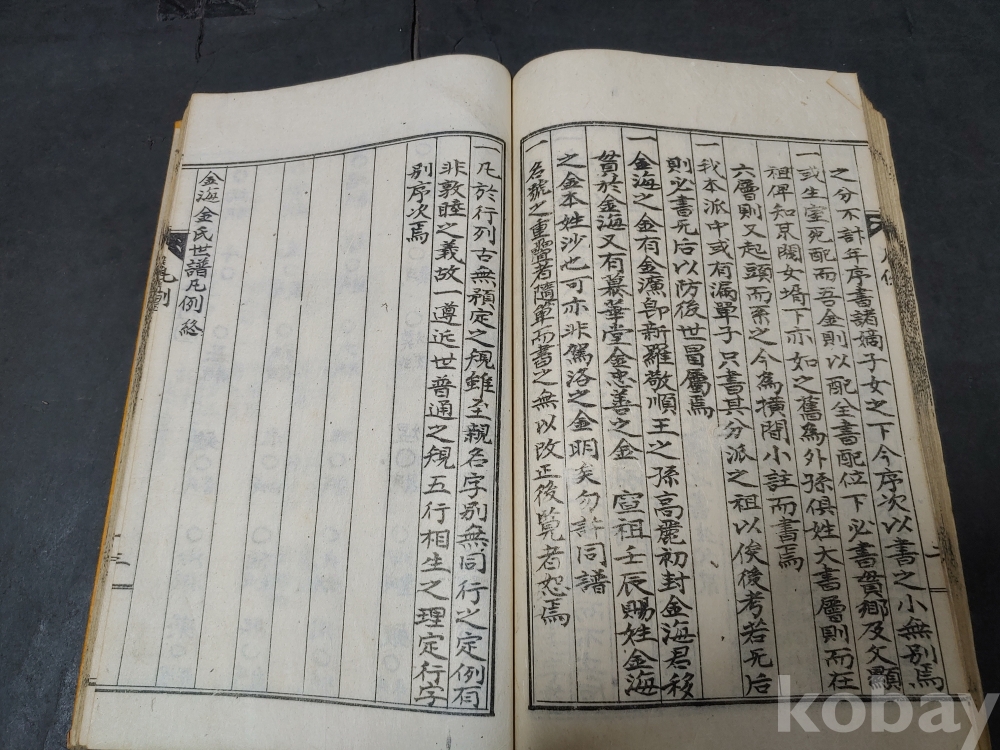 之分不計年序書諸嫡子女之下今序次以書之小無別焉
一或生室死配而吾金則以配全書配位下必書貫鄕及父顯
祖俾知京閥女壻下亦如之舊為外孫俱姓大書層則而在
六層則又起頭而系之今為橫間小註而書焉
一我本派中或有漏單子只書其分派之祖以俟後考若无后
則必書无后以防後世冒屬焉
一金海之金有金濂卽新羅敬順王之孫高麗初封金海君移
貫於金海又有慕華堂金忠善之金 宣祖壬辰賜姓金海
之金本姓沙也可亦非駕洛之金明矣勿許同譜
一名號之重疊者隨單而書之無以改正後覽者恕焉
一凡於行列古無預定之規雖至親名字別無同行之定例有
非敦睦之義故一遵近世普通之規五行相生之理定行字
別序次焉
金海金氏世譜凡例終
凡例
三
kobay